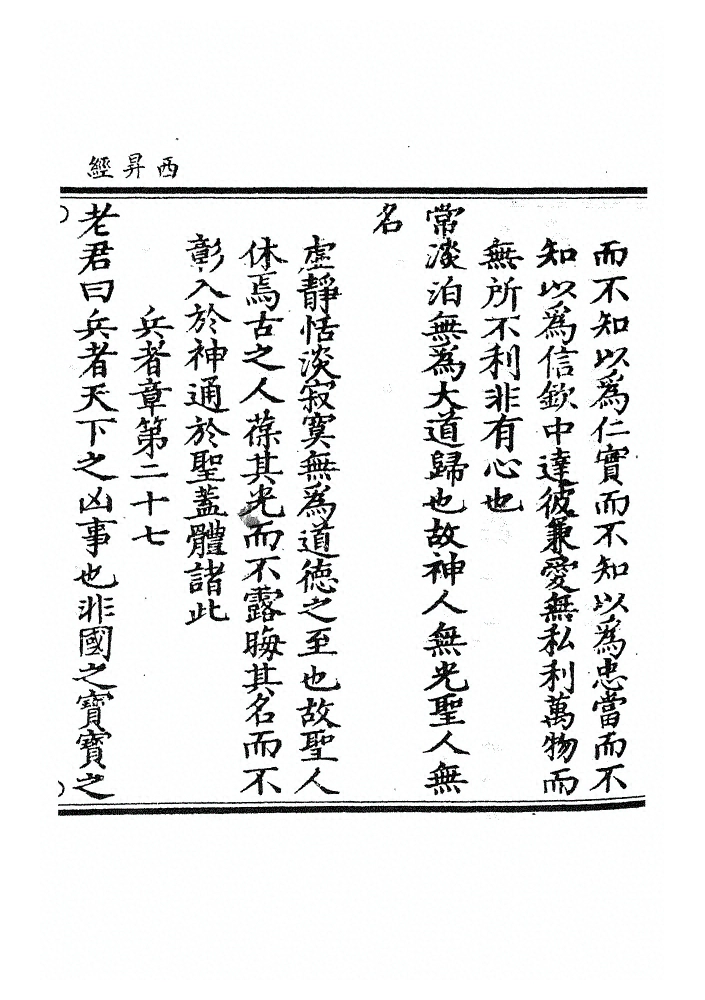 西昇經
而不知以為仁實而不知以為忠當而不
知以為信欽中達彼兼愛無私利萬物而
無所不利非有心也
常淡泊無為大道歸也故神人無光聖人無
名
虛靜恬淡寂寞無為道德之至也故聖人
休焉古之人葆其光而不露晦其名而不
彰入於神通於聖蓋體諸此
兵者章第二十七
老君曰兵者天下之凶事也非國之寶寶之